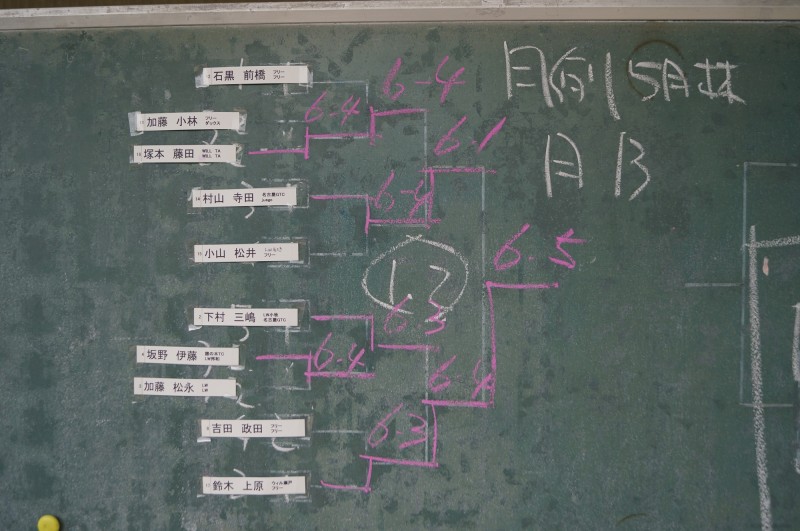 石黒 前橋 フリー フリー
6-4
加藤 小林 フリー
6.4
6.1
塚本 藤田 WILL TA WILL TA
村山 寺田 名古屋GTC
6-4
6.5
小山 松井 フリー
1.2
下村 三嶋 名古屋GTC
6.3
坂野 伊藤
6.4
6.4
加藤 松永 LW LW
吉田 政田 フリー フリー
6.3
鈴木 上原 フリー
5月
B